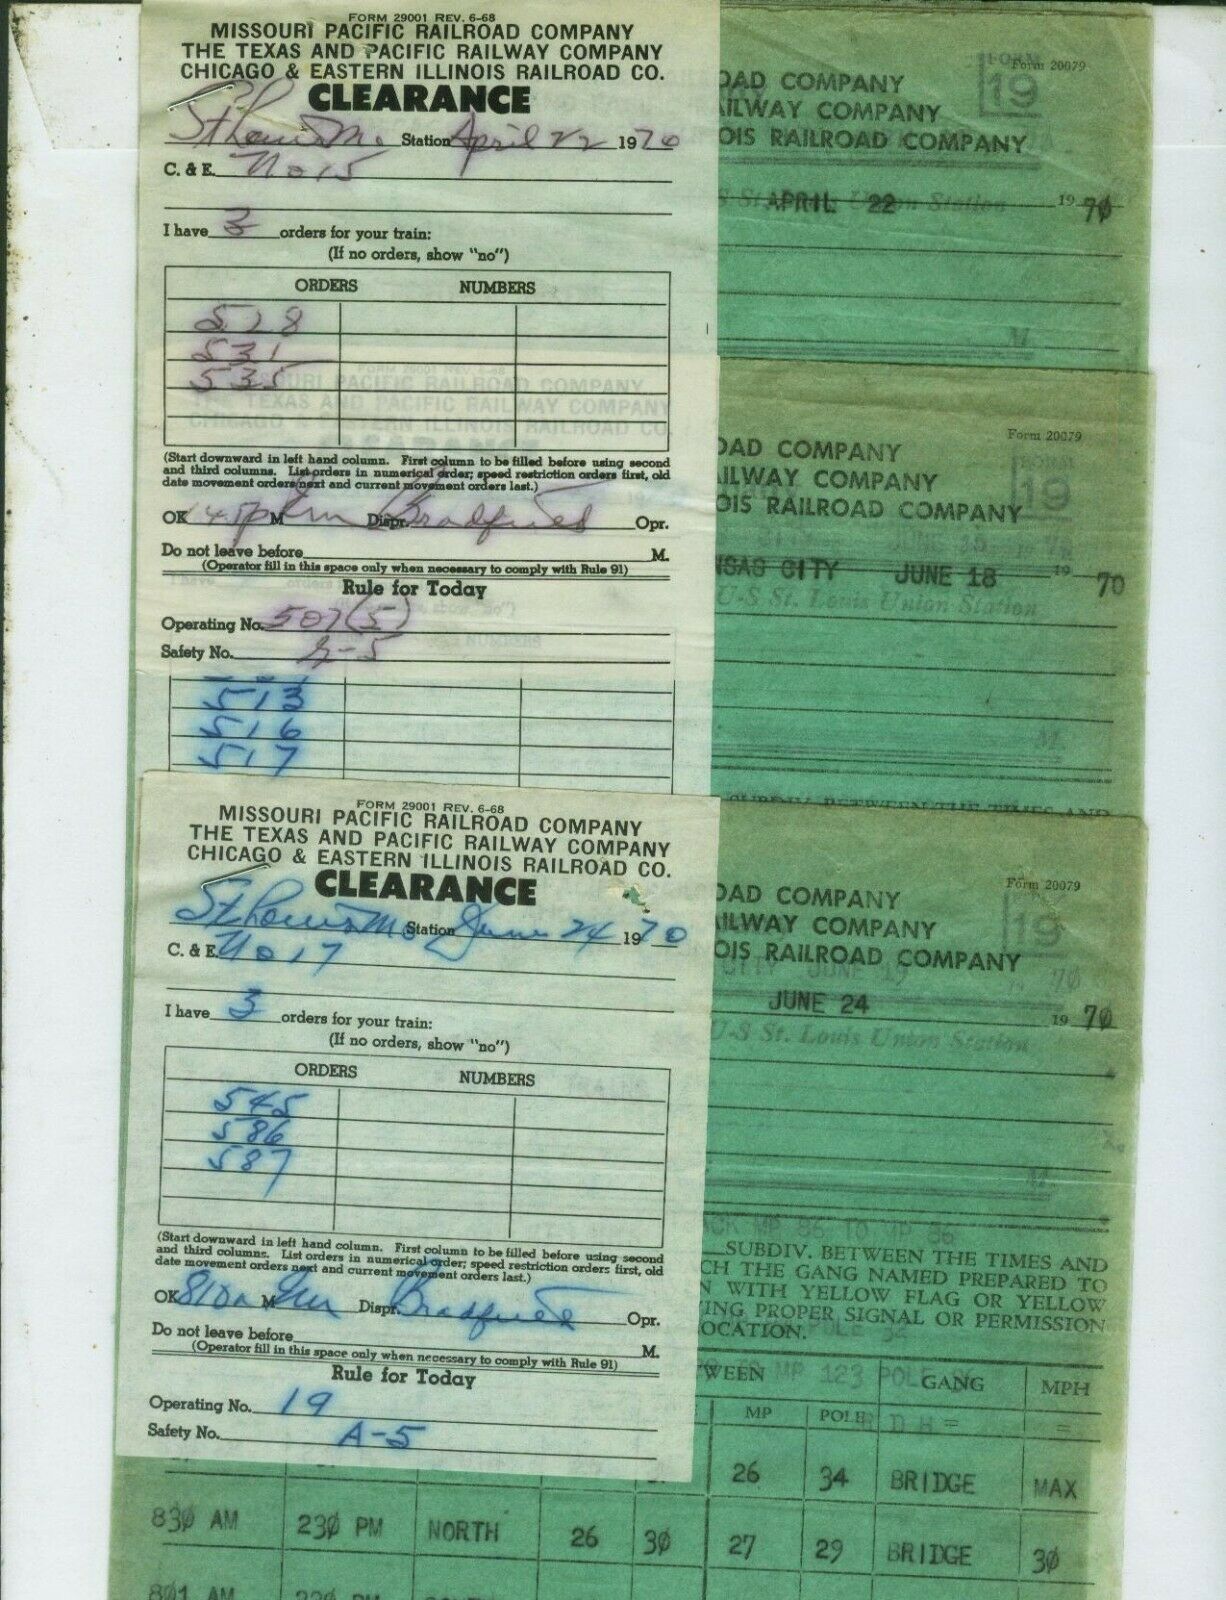 FORM 29001 REV. 6-68
MISSOURI PACIFIC RAILROAD COMPANY
THE TEXAS AND PACIFIC RAILWAY COMPANY
CHICAGO & EASTERN ILLINOIS RAILROAD CO.
CLEARANCE
St Louis Mo. Station April 22 1970
C. & E. No 15
I have 3 orders for your train:
(If no orders, show "no")
ORDERS NUMBERS
528
531
535
(Start downward in left hand column. First column to be filled before using second
and third columns. List orders in numerical order; speed restriction orders first, old
date movement orders next and current movement orders last.)
OK 145p M Dispr. Opr.
Do not leave before M.
(Operator fill in this space only when necessary to comply with Rule 91)
Rule for Today
Operating No. 507(5)
Safety No.
513
516
517
FORM 29001 REV. 6-68
MISSOURI PACIFIC RAILROAD COMPANY
THE TEXAS AND PACIFIC RAILWAY COMPANY
CHICAGO & EASTERN ILLINOIS RAILROAD CO.
CLEARANCE
St Louis Mo. Station June 24 1970
C. & E. No 17
I have 3 orders for your train:
(If no orders, show "no")
ORDERS NUMBERS
545
586
587
(Start downward in left hand column. First column to be filled before using second
and third columns. List orders in numerical order; speed restriction orders first, old
date movement orders next and current movement orders last.)
OK 810a M Dispr. Opr.
Do not leave before M.
(Operator fill in this space only when necessary to comply with Rule 91)
Rule for Today
Operating No. 19
Safety No. A-5
FORM 19 Form 20079
OAD COMPANY
AILWAY COMPANY
OIS RAILROAD COMPANY
APRIL 22 1970
Union Station
Form 20079
19
OAD COMPANY
AILWAY COMPANY
OIS RAILROAD COMPANY
NSAS CITY JUNE 18 1970
U-S St. Louis Union Station
M.
SUBDIV. BETWEEN THE TIMES AND
Form 20079
19
OAD COMPANY
AILWAY COMPANY
OIS RAILROAD COMPANY
CITY JUNE 19 70
JUNE 24 1970
U-S St. Louis Union Station
M.
ACK MP 86 TO MP 36
SUBDIV. BETWEEN THE TIMES AND
CH THE GANG NAMED PREPARED TO
N WITH YELLOW FLAG OR YELLOW
ING PROPER SIGNAL OR PERMISSION
OCATION.
WEEN MP 123 POLE GANG MPH
MP POLE
26 34 BRIDGE MAX
830 AM 230 PM NORTH 26 30 27 29 BRIDGE 30
801 AM